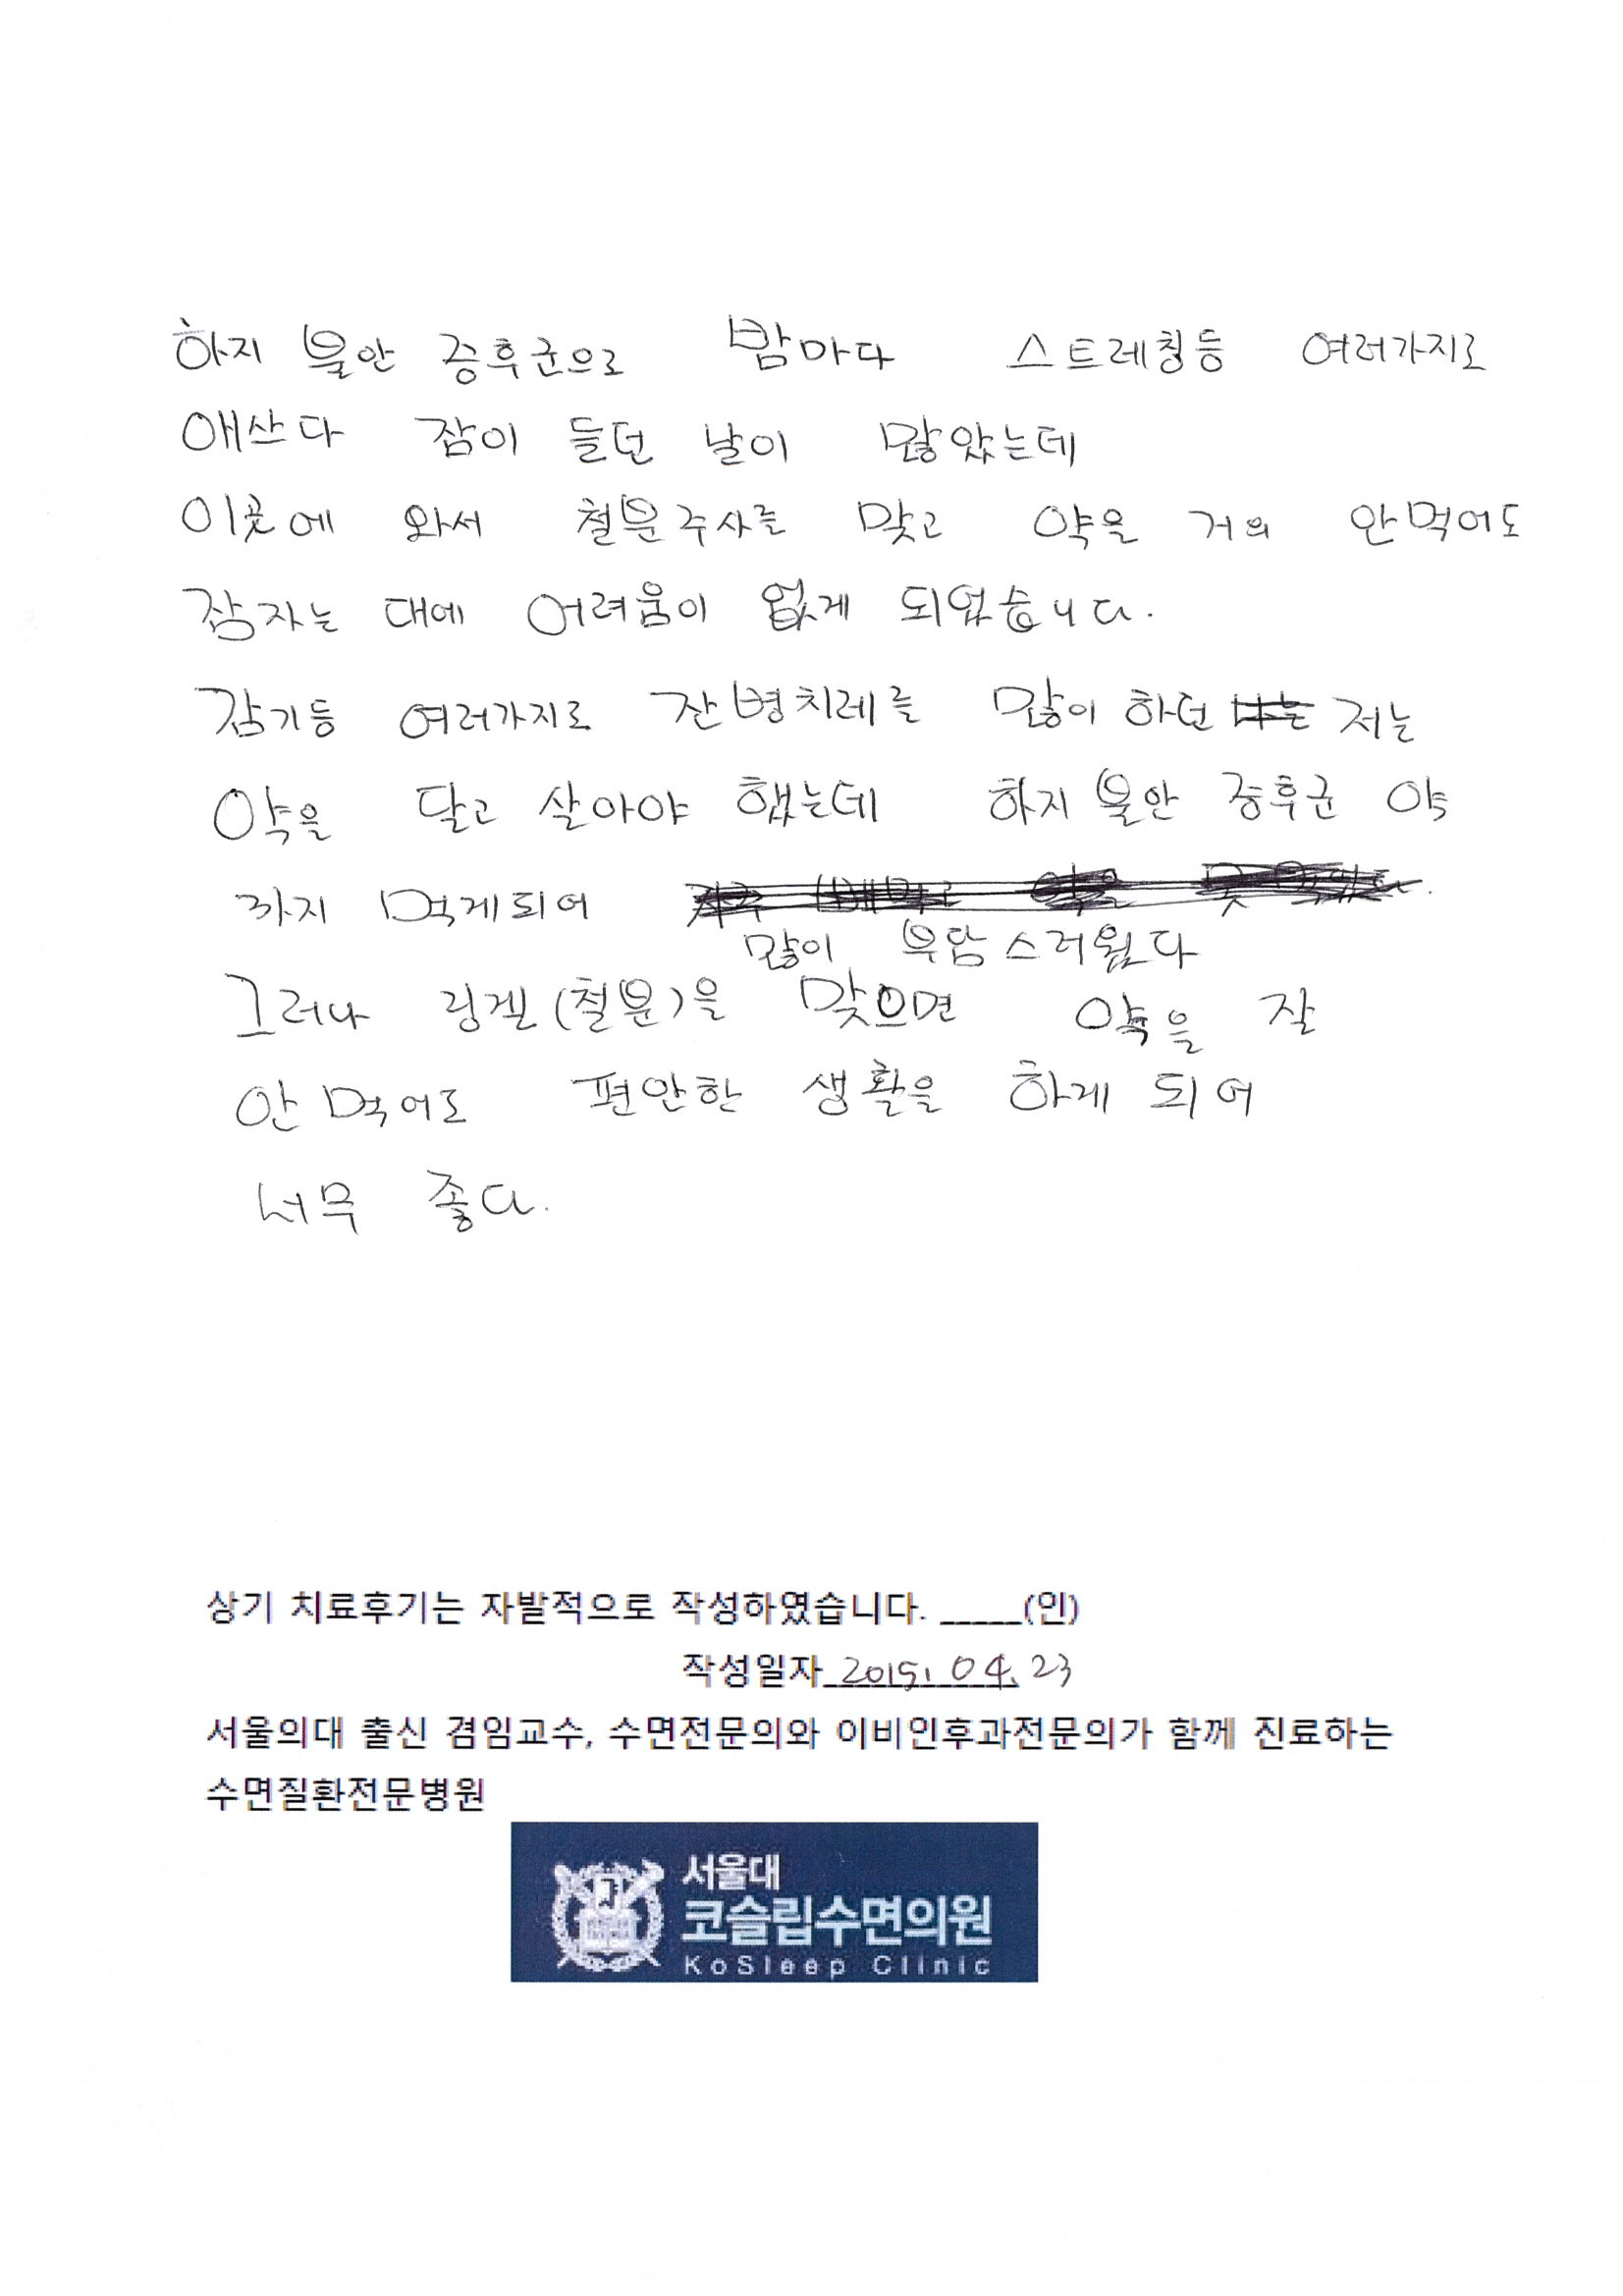 하지 불안 증후군으로 밤마다 스트레칭등 여러가지로
애쓰다 잠이 들던 날이 많았는데
이곳에 와서 철분주사를 맞고 약을 거의 안먹어도
잠자는 대에 어려움이 없게 되었습니다.
감기등 여러가지로 잔병치레를 많이 하던 저는
약을 달고 살아야 했는데 하지 불안 증후군 약
까지 먹게되어
많이 부담스러웠다
그러나 링겔(철분)을 맞으면 약을 잘
안 먹어도 편안한 생활을 하게 되어
너무 좋다.
상기 치료후기는 자발적으로 작성하였습니다. _____(인)
작성일자 2015. 04. 23
서울의대 출신 겸임교수, 수면전문의와 이비인후과전문의가 함께 진료하는
수면질환전문병원
서울대
코슬립수면의원
KoSleep Clinic